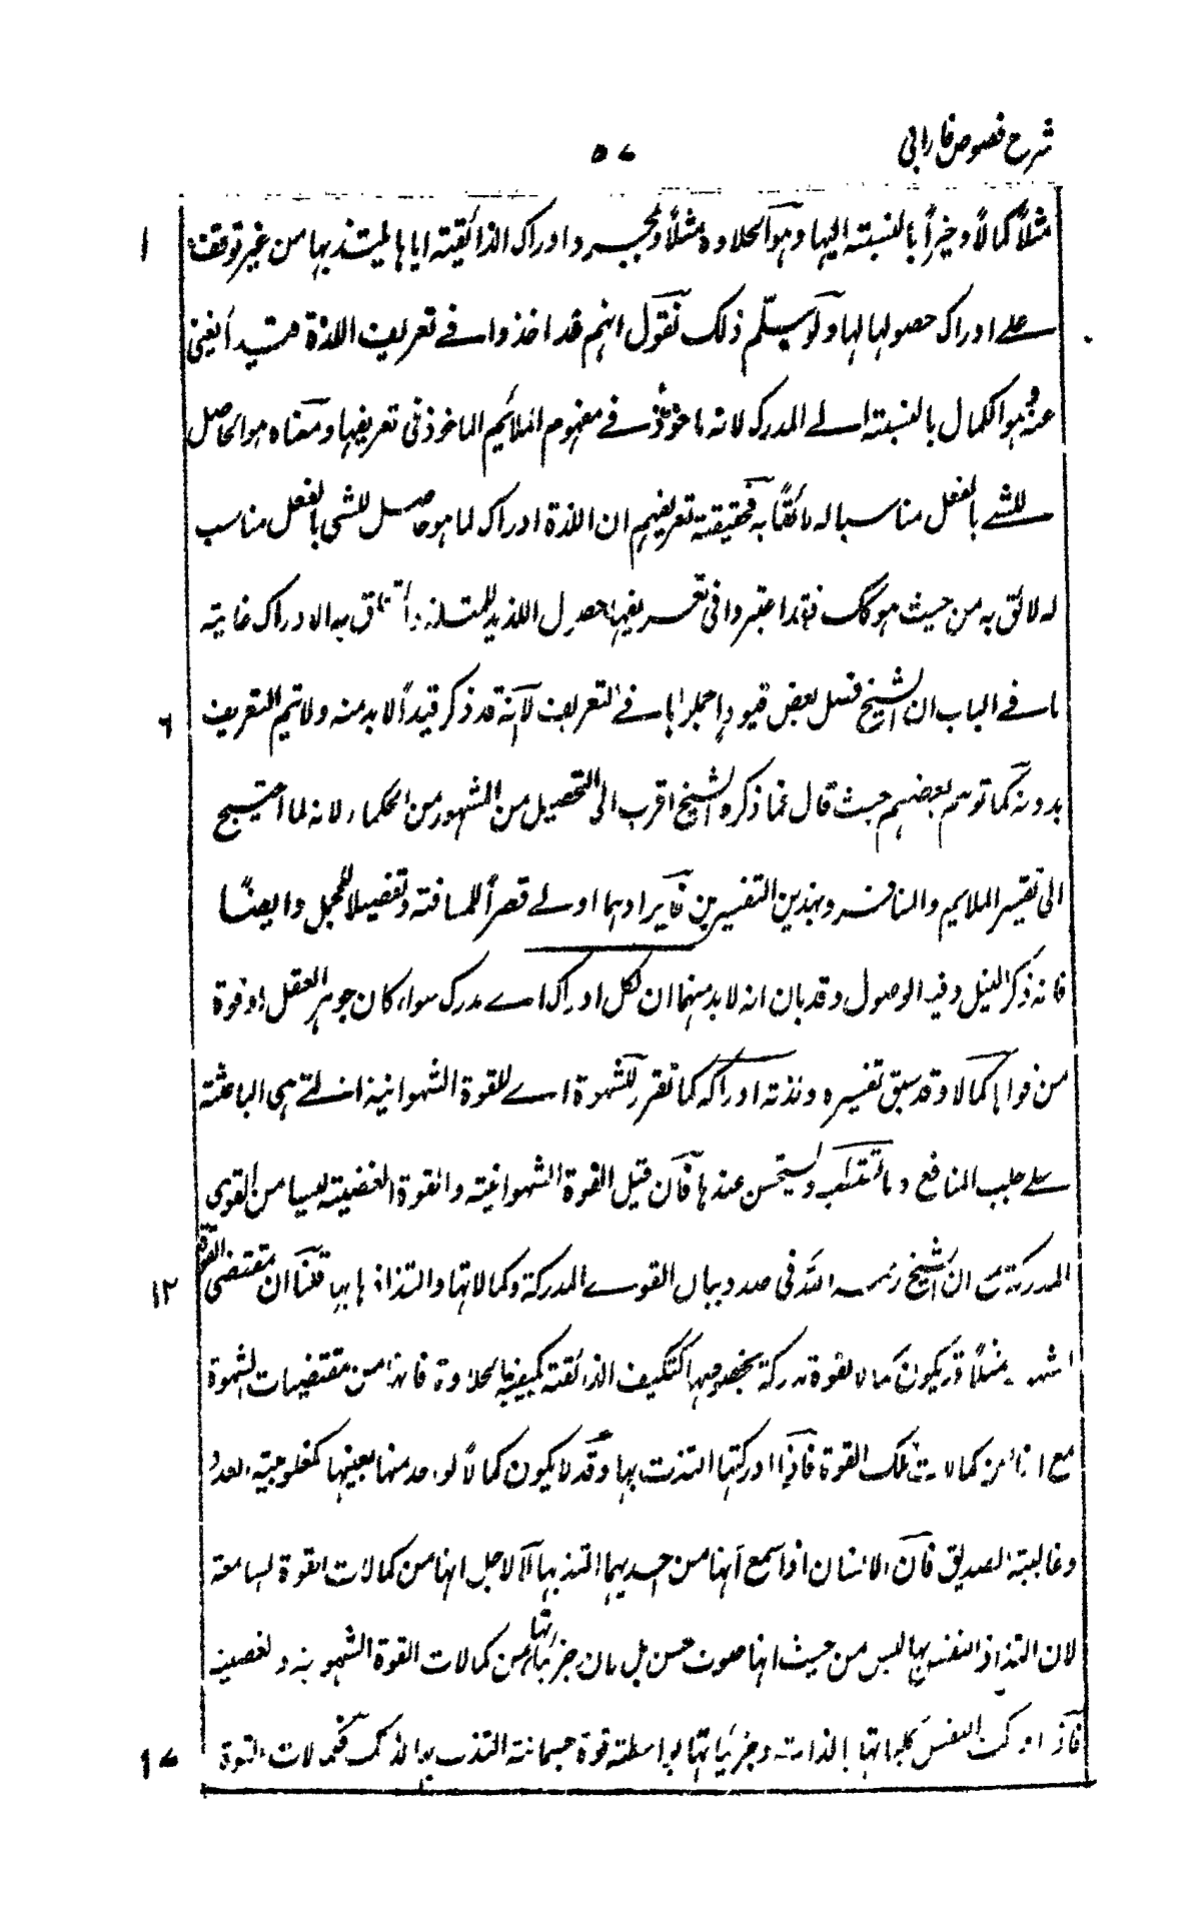 شرح فصوص فارابی
٥٧
مثلاً كمالاً وخيراً بالنسبته اليها وهو الحلاوة مثلاً وبمجرد ادراك الذائقيته اياها يلتذ بها من غير توقف ١
علے ادراك حصولها لها ولو سلّم ذلك نقول انهم قد اخذوا فے تعريف اللذة قيداً يغنى
عنه هو الكمال بالنسبته الے المدرك لانه ماخوذ فے مفهوم الملائيم الماخوذ فى تعريفها ومعناه هو الحاصل
للشے بالفعل مناسبا له لائقاً به فحقيقته تعريفهم ان اللذة ادراك لما هو حاصل للشى بالفعل مناسب
له لائق به من حيث هو كك فقد اعتبروا فى تعريفها حصول اللذيذ للمتلذذ به الادراك غايته
ما فے الباب ان الشيخ فصل بعض قيود اجملوها فے التعريف لا انه قد ذكر قيداً لا بد منه ولا تيم التعريف ٦
بدونه كما توهم بعضهم حيث قال فما ذكره الشيخ اقرب الى التحصيل من المشهور من الحكماء لانه لما احتيج
الى تفسير الملايم والمنافر وبهذين التفسيرين فايرادهما اولے قصراً للمسافته وتفصيلا للمجمل وايضًا
فانه ذكر النيل وفيه الوصول وقد بان انه لا بد منهما ان لكل ادراك اے مدرك سواء كان جوهر العقل او قوة
من قواها كمالا وقد سبق تفسيره ولذته ادراكه كما تقرر للشهوة اے للقوة الشهوانية التے هى الباعثته
علے جلب المنافع وما يستحسن عندها فان قيل القوة الشهوانيته والقوة الغضبيته ليسا من القوى
المدركة مع ان الشيخ رحمه اللّه فى صدد بيان القوے المدركة وكمالاتها والتذاذها بها قلنا ان مقتضى القوة ١٢
مثلاً قد يكون كمالا لقوة مدركة بخصوصها كتكيف الذائقته بكيفيته الحلاوة فانها من مقتضيات الشهوة
مع انها من كمالات تلك القوة فاذا ادركتها التذت بها وقد لا يكون كمالاً لواحد منها بعينها كمغلوبيته العدو
وغالبيته الصديق فان الانسان اذا سمع التذ بها لا لاجل انها من كمالات القوة السامعته
لان التذاذ النفس بها ليس من حيث انها صوت حسن بل من كمالات القوة الشهوية والغضبية
فاذا ادركت النفس كلياتها بالذات وجزئياتها بواسطته قوة جسمانته التذت بها القوة ١٧